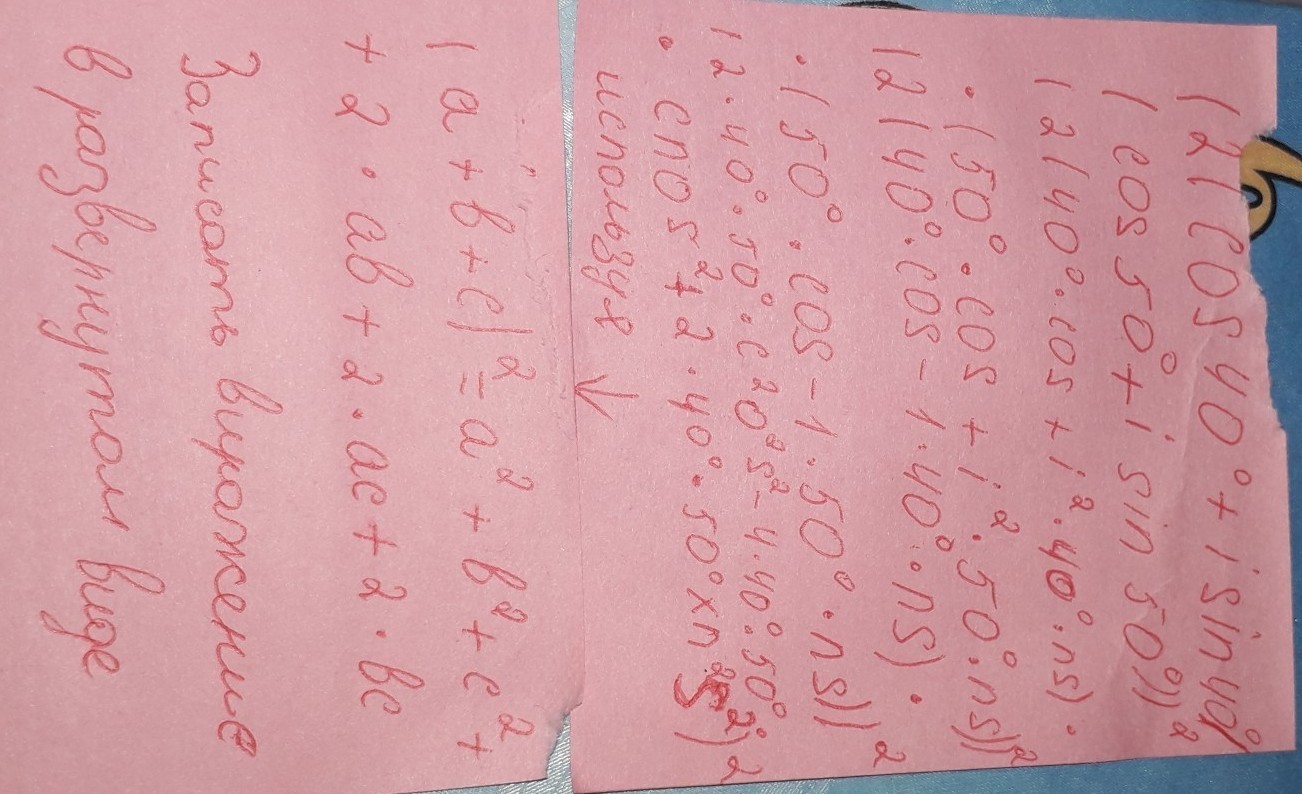 (2(cos 40° + i sin 40°)
(cos 50° + i sin 50°))²
(2(40° · cos + i² · 40° · ns) ·
· (50° · cos + i² · 50° · ns))²
(2(40° · cos - 1 · 40° · ns) ·
· (50° · cos - 1 · 50° · ns))²
(2 · 40° · 50° · c²0²s² - 4 · 40° · 50° ·
· cnos² + 2 · 40° · 50° x n²s²)²
используя ↓
(a + b + c)² = a² + b² + c² +
+ 2 · ab + 2 · ac + 2 · bc
Записать выражение
в развернутом виде